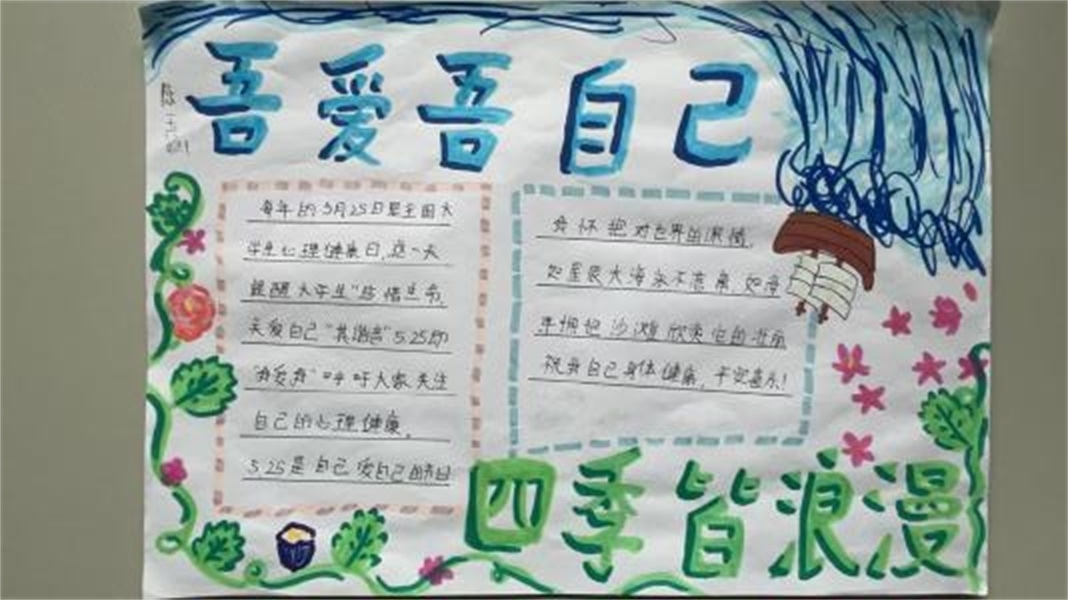 吾爱吾自己
每年的5月25日是全国大
学生心理健康日,这一天
提醒大学生"珍惜生命,
关爱自己"其谐音"5.25即
"我爱我"呼吁大家关注
自己的心理健康,
5.25是自己爱自己的节日
我怀抱对世界的热情,
如星辰大海永不
拥抱沙滩欣赏它的
祝我自己身体健康,平安喜乐!
四季皆浪漫